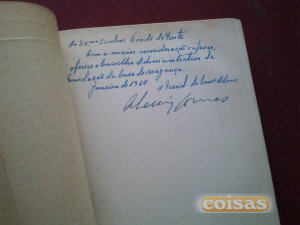 Ao Exmo Senhor Conde da Ponte
com a maior consideração e apreço,
oferece o Conselho Administrativo da
Fundação da Casa de Bragança.
Janeiro de 1960
O Presid. do Cons. Adm.
coisas